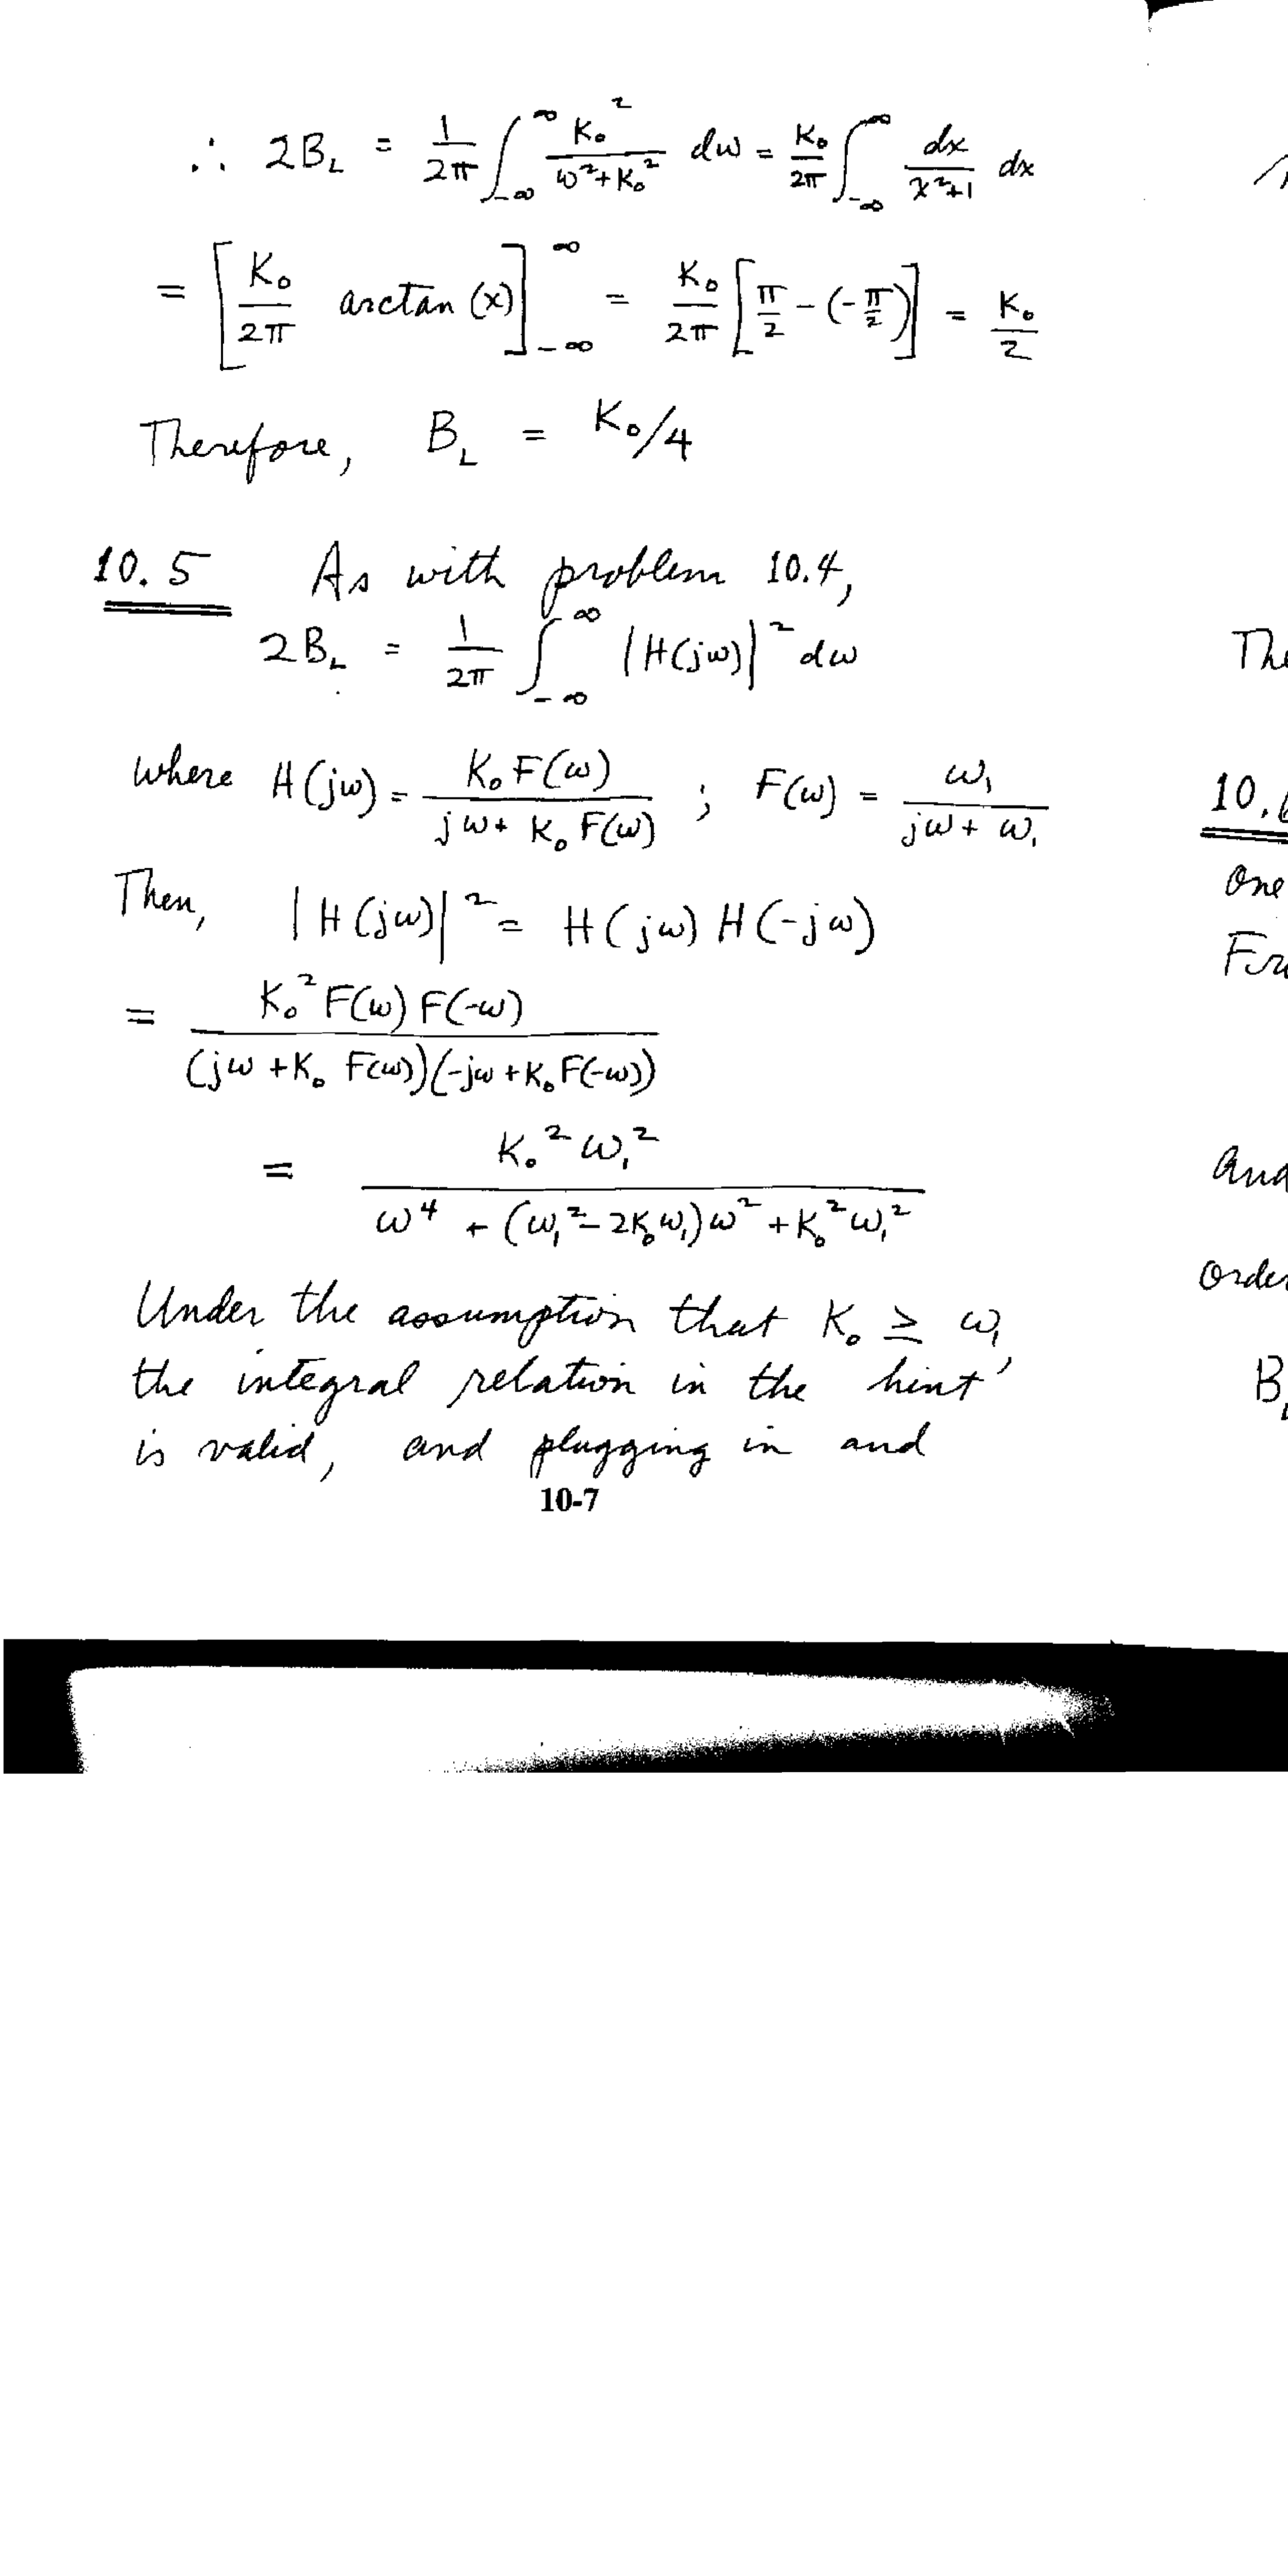 ∴ 2B_L = 1/2π ∫_{-∞}^{∞} K₀²/(ω²+K₀²) dω = K₀/2π ∫_{-∞}^{∞} dx/(x²+1) dx
= [K₀/2π arctan (x)]_{-∞}^{∞} = K₀/2π [π/2 - (-π/2)] = K₀/2
Therefore, B_L = K₀/4
10.5 As with problem 10.4,
2B_L = 1/2π ∫_{-∞}^{∞} |H(jω)|² dω
where H(jω) = K₀F(ω)/(jω + K₀F(ω)) ; F(ω) = ω₁/(jω + ω₁)
Then, |H(jω)|² = H(jω) H(-jω)
= K₀²F(ω)F(-ω)/((jω + K₀F(ω))(-jω + K₀F(-ω)))
= K₀²ω₁²/(ω⁴ + (ω₁² - 2K₀ω₁)ω² + K₀²ω₁²)
Under the assumption that K₀ ≥ ω₁,
the integral relation in the hint
is valid, and plugging in and
10-7
The
10.
One
And
Orde
B